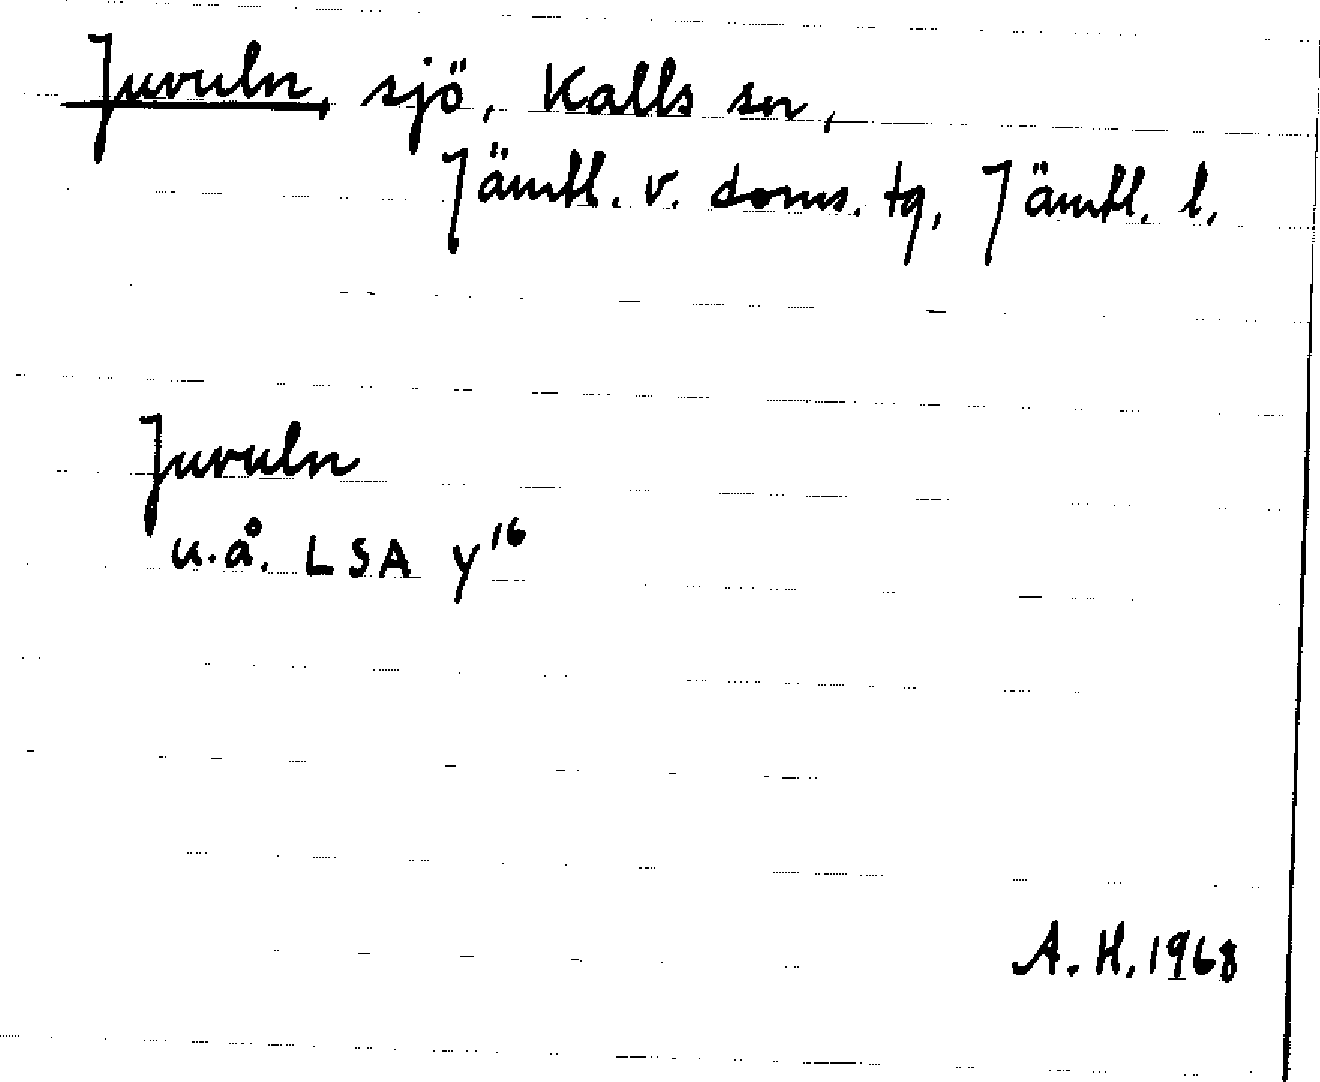 Juvuln, sjö, Kalls sn,
Jämtl. v. doms. tg, Jämtl. l.
Juvuln
u.å. LSA y¹⁶
A. H. 1968